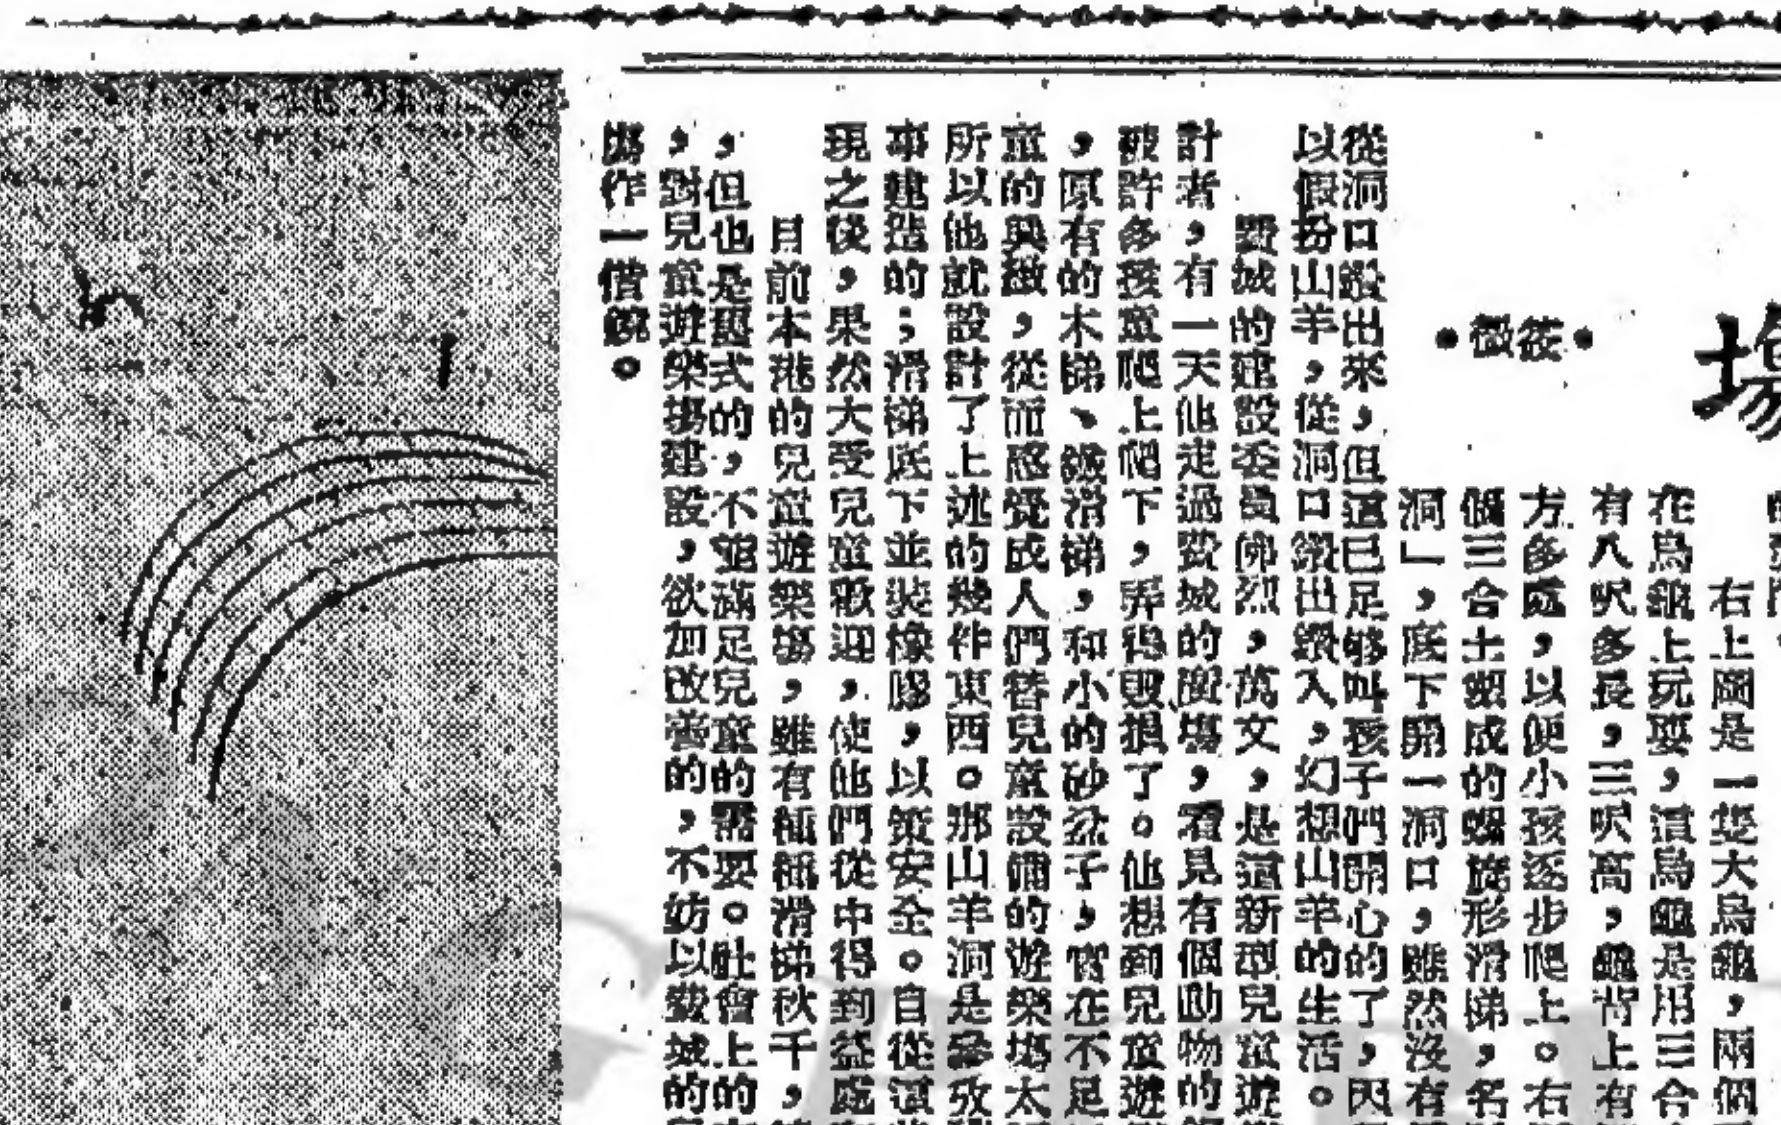 場
•薇筱•
右上圖是一隻大烏龜，兩個
在烏龜上玩耍，這烏龜是用三合
有八呎多長，三呎高，龜背上有
方多處，以便小孩逐步爬上。右
個三合土製成的螺旋形滑梯，名
洞」，底下開一洞口，雖然沒有
從洞口鑽出來，但這已足够叫孩子們開心的了，因
以假扮山羊，從洞口鑽出鑽入，幻想山羊的生活。
費城的建設委員佛烈，萬文，是這新型兒童遊
計者，有一天他走過費城的廣場，看見有個動物的
被許多孩童爬上爬下，弄得毀損了。他想到兒童遊
，原有的木梯、鐵滑梯，和小的砂盆子，實在不足
童的興緻，從而感覺成人們替兒童設備的遊樂場太
所以他就設計了上述的幾件東西。那山羊洞是參攷
事建造的；滑梯底下並裝橡膠，以策安全。自從這
現之後，果然大受兒童歡迎，使他們從中得到益處
目前本港的兒童遊樂場，雖有種種滑梯秋千，
，但也是舊式的，不能滿足兒童的需要。社會上的
，對兒童遊樂場建設，欲加改善的，不妨以費城的
場作一借鏡。